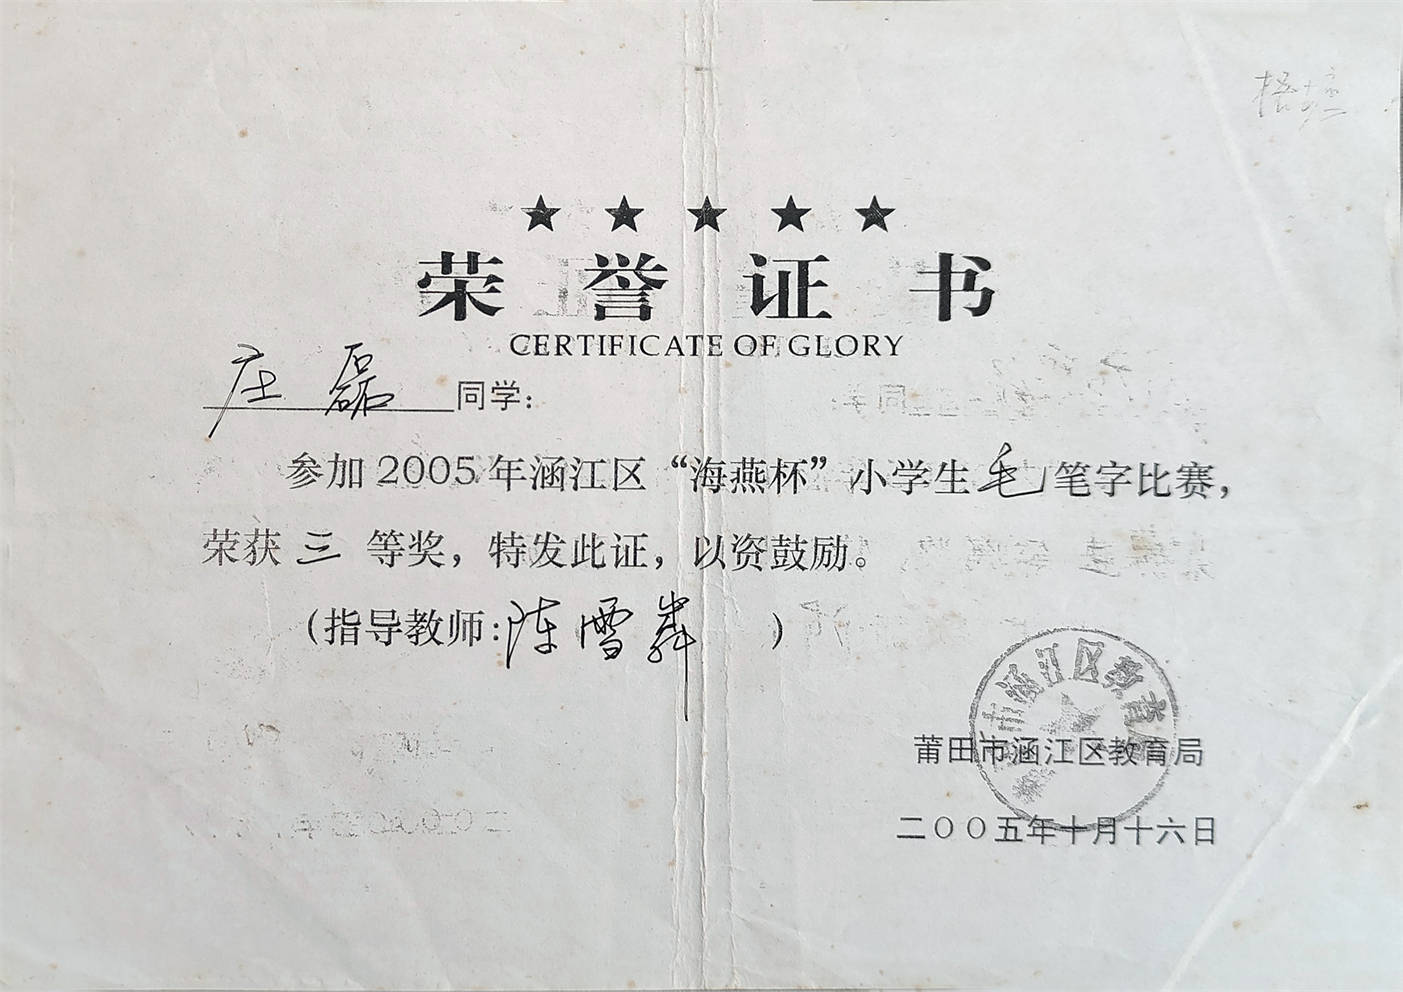 梧塘
荣誉证书
CERTIFICATE OF GLORY
庄磊同学：
参加2005年涵江区“海燕杯”小学生毛笔字比赛，
荣获三等奖，特发此证，以资鼓励。
（指导教师：陈雪
）
市涵江区教育局
莆田市涵江区教育局
二〇〇五年十月十六日